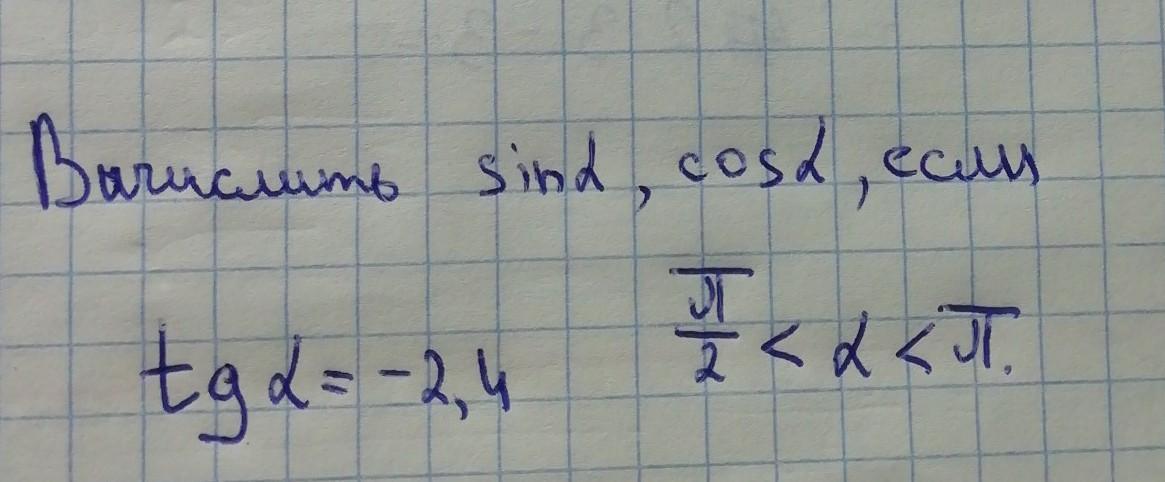 Вычислить sinα, cosα, если
tg α = -2,4 π/2 < α < π.